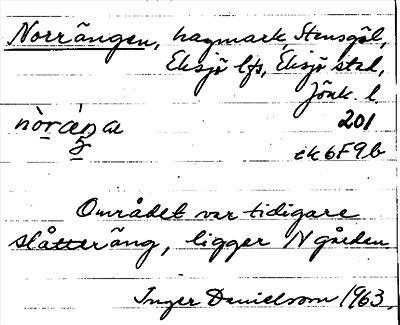 Norrängen, hagmark, Stensgöl,
Eksjö lfs, Eksjö stad,
Jönk. l.
201
ek 6F9b
Området var tidigare
slåtteräng, ligger N gården
Inger Danielsson 1963.